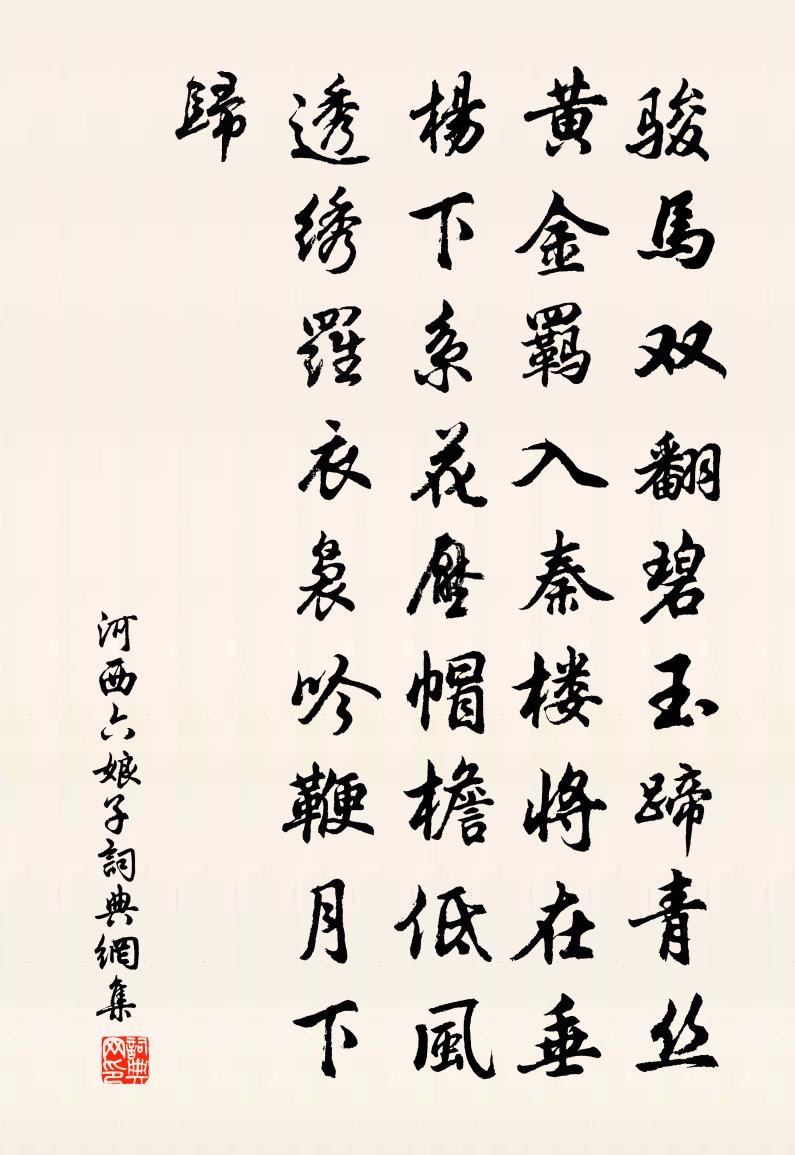 骏馬双翻碧玉蹄青丝
黄金羁入秦楼将在垂
楊下系花壓帽檐低風
透绣羅衣袅吟鞭月下
歸
河西六娘子詞典網集
詞典网印